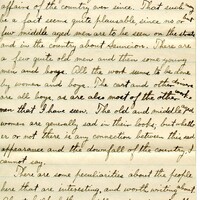 affairs of the country ever since. That such may
be a fact seems quite plausable, since no or
few middle aged men are to be seen on the streets
and in the country about Asuncion. There are
a few quite old men and then some young
men and boys. All the work seems to be done
by women and boys. The cart and other
are all boys, as are also most of the other
men that I have seen. The old and middle aged
women are generally sad in their looks, but wheth-
er or not there is any connection between this sad
appearance and the downfall of the country, I
cannot say.
There are some peculiarities about the people
here that are interesting, and worth writing about